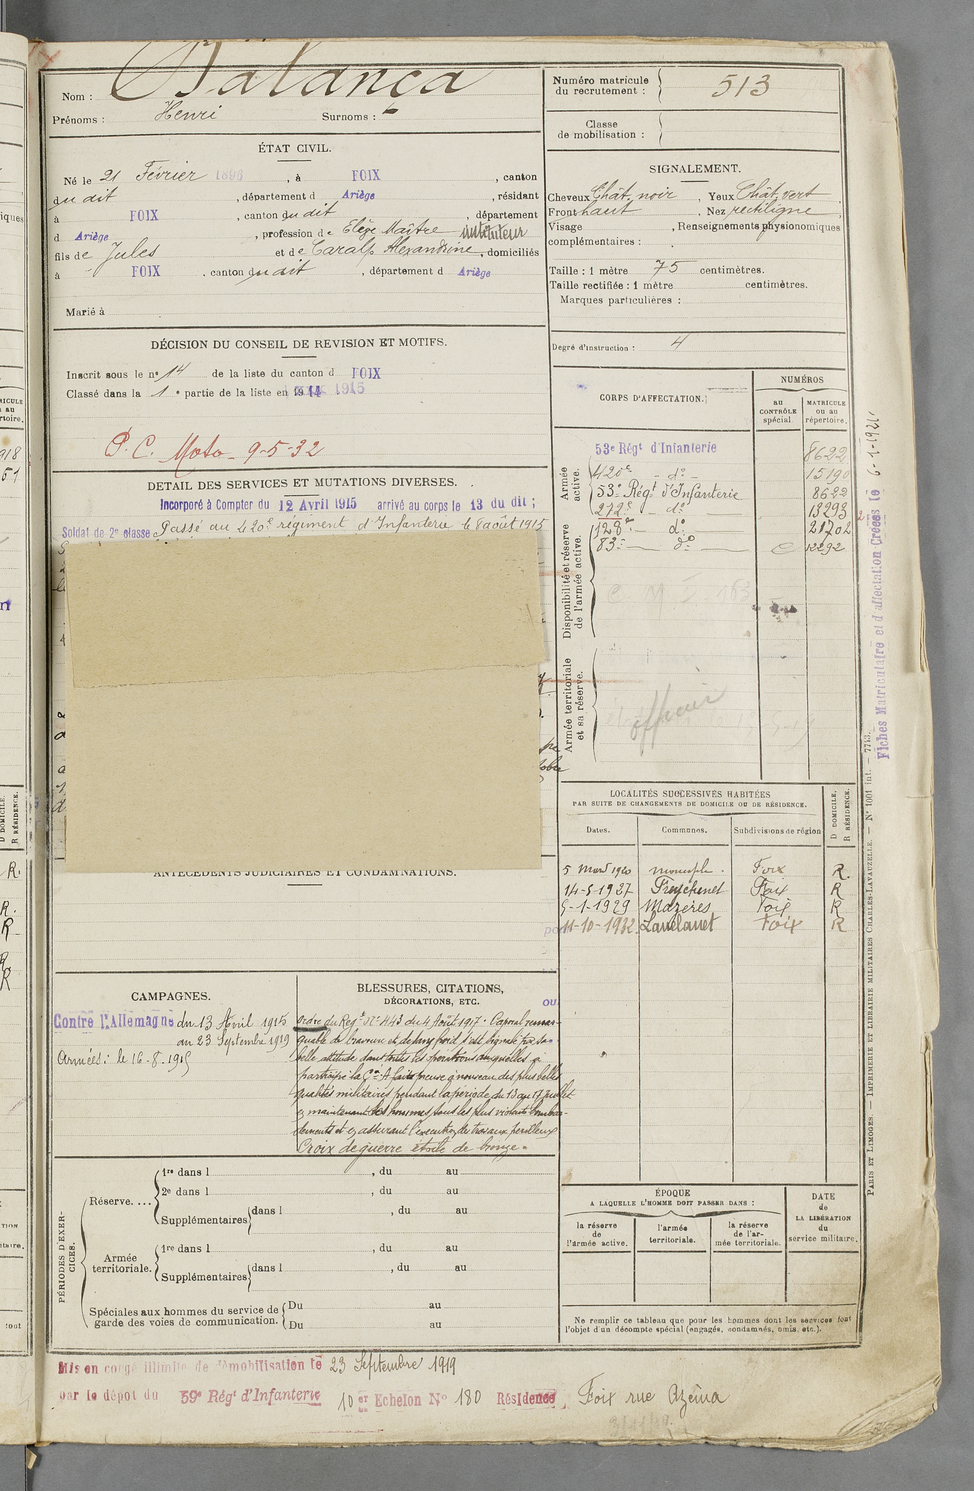 Nom : Balança
Prénoms : Henri Surnoms : -
Numéro matricule du recrutement : 513
Classe de mobilisation :
ÉTAT CIVIL.
Né le 21 Février 1896, à FOIX, canton
du dit, département d Ariège, résidant
à FOIX, canton du dit, département
d Ariège, profession de Elève Maître instituteur
fils de Jules et de Caralp Alexandrine, domiciliés
à FOIX, canton du dit, département d Ariège
Marié à
SIGNALEMENT.
Cheveux Chât. noir, Yeux Chât. vert
Front haut, Nez rectiligne
Visage , Renseignements physionomiques
complémentaires :
Taille : 1 mètre 75 centimètres.
Taille rectifiée : 1 mètre centimètres.
Marques particulières :
Degré d'instruction : 4
DÉCISION DU CONSEIL DE REVISION ET MOTIFS.
Inscrit sous le nº 14 de la liste du canton d FOIX
Classé dans la 1e partie de la liste en 1915
P.C. Moto - 9-5-32
DÉTAIL DES SERVICES ET MUTATIONS DIVERSES.
Incorporé à Compter du 12 Avril 1915 arrivé au corps le 13 du dit ;
Soldat de 2e classe Passé au 420e régiment d'Infanterie le 8 août 1915
CORPS D'AFFECTATION.
NUMÉROS
AU CONTRÔLE spécial.
MATRICULE ou au répertoire.
Armée active.
53e Régt d'Infanterie 8622
420e - dº - 15190
53e Régt d'Infanterie 8622
272e - dº 13293
Disponibilité et réserve de l'armée active.
128e - dº 21702
83e - dº - 12292
Armée territoriale et sa réserve.
officier
Fiches Matriculaire et d'affectation Créées le 6-1-1921
LOCALITÉS SUCCESSIVES HABITÉES
PAR SUITE DE CHANGEMENTS DE DOMICILE OU DE RÉSIDENCE.
Dates. Communes. Subdivisions de région D DOMICILE. R RÉSIDENCE.
5 Mars 1920 Foix R.
14-5-1927 Freychenet Foix R
5-1-1929 Mazères Foix R
11-10-1932 Lavelanet Foix R
ANTÉCÉDENTS JUDICIAIRES ET CONDAMNATIONS.
CAMPAGNES.
Contre l'Allemagne du 13 Avril 1915
au 23 Septembre 1919
Armées : le 16-8-1915
BLESSURES, CITATIONS,
DÉCORATIONS, ETC.
Ordre du Régt Nº 443 du 4 Août 1917. Caporal remar-
quable de bravoure et de sang froid s'est signalé par sa
belle attitude dans toutes les opérations auxquelles a
participé la Cie. A fait preuve à nouveau des plus belles
qualités militaires pendant la période du 13 au 17 juillet
en maintenant les hommes sous les plus violents bombar-
dements et en assurant l'exécution de travaux périlleux
Croix de guerre étoile de bronze.
PÉRIODES D'EXERCICES.
Réserve.... 1re dans l , du au
2e dans l , du au
Supplémentaires dans l , du au
Armée territoriale. 1re dans l , du au
Supplémentaires dans l , du au
Spéciales aux hommes du service de garde des voies de communication. Du au
Du au
ÉPOQUE
A LAQUELLE L'HOMME DOIT PASSER DANS :
la réserve de l'armée active.
l'armée territoriale.
la réserve de l'armée territoriale.
DATE de LA LIBÉRATION du service militaire.
Ne remplir ce tableau que pour les hommes dont les services font
l'objet d'un décompte spécial (engagés, condamnés, omis, etc.).
PARIS ET LIMOGES. — IMPRIMERIE ET LIBRAIRIE MILITAIRES CHARLES-LAVAUZELLE. — Nº 1001 int. — 7713.
Mis en congé illimité de démobilisation le 23 Septembre 1919
par le dépôt du 59e Régt d'Infanterie 10e Echelon Nº 180 Résidence Foix rue Azéma